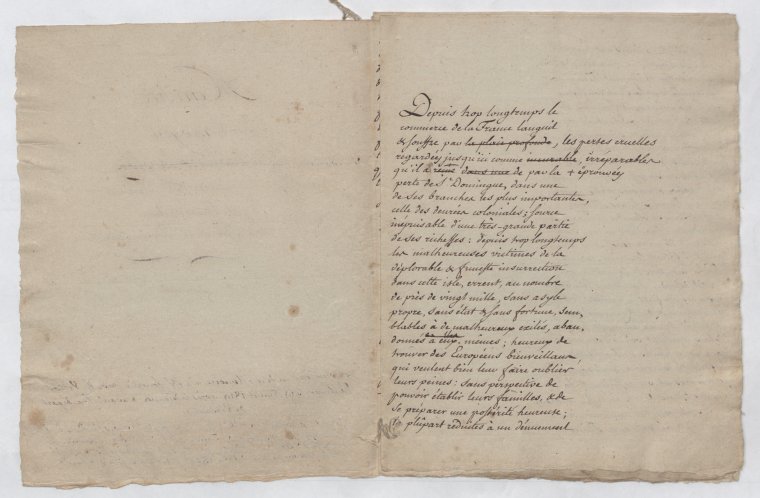 Depuis trop longtemps le
commerce de la France languit
& souffre par la plaie profonde, les pertes cruelles
regardées jusqu'ici comme incurable, irréparables
qu'il a reçue dans une de par la + éprouvées
perte de St Domingue, dans une
de ses branches les plus importantes,
celle des denrées coloniales; source
inépuisable d'une très-grande partie
de ses richesses: depuis trop longtemps
les malheureuses victimes de la
déplorable & funeste insurrection
dans cette isle, errent, au nombre
de près de vingt mille, sans asyle
propre, sans état & sans fortune, sem-
blables à de malheureux exilés, aban-
donnés à eux mêmes; heureux de
trouver des Européens bienveillans,
qui veulent bien leur faire oublier
leurs peines: sans perspective de
pouvoir établir leurs familles, & de
se préparer une postérité heureuse;
la plûpart réduites à un dénument